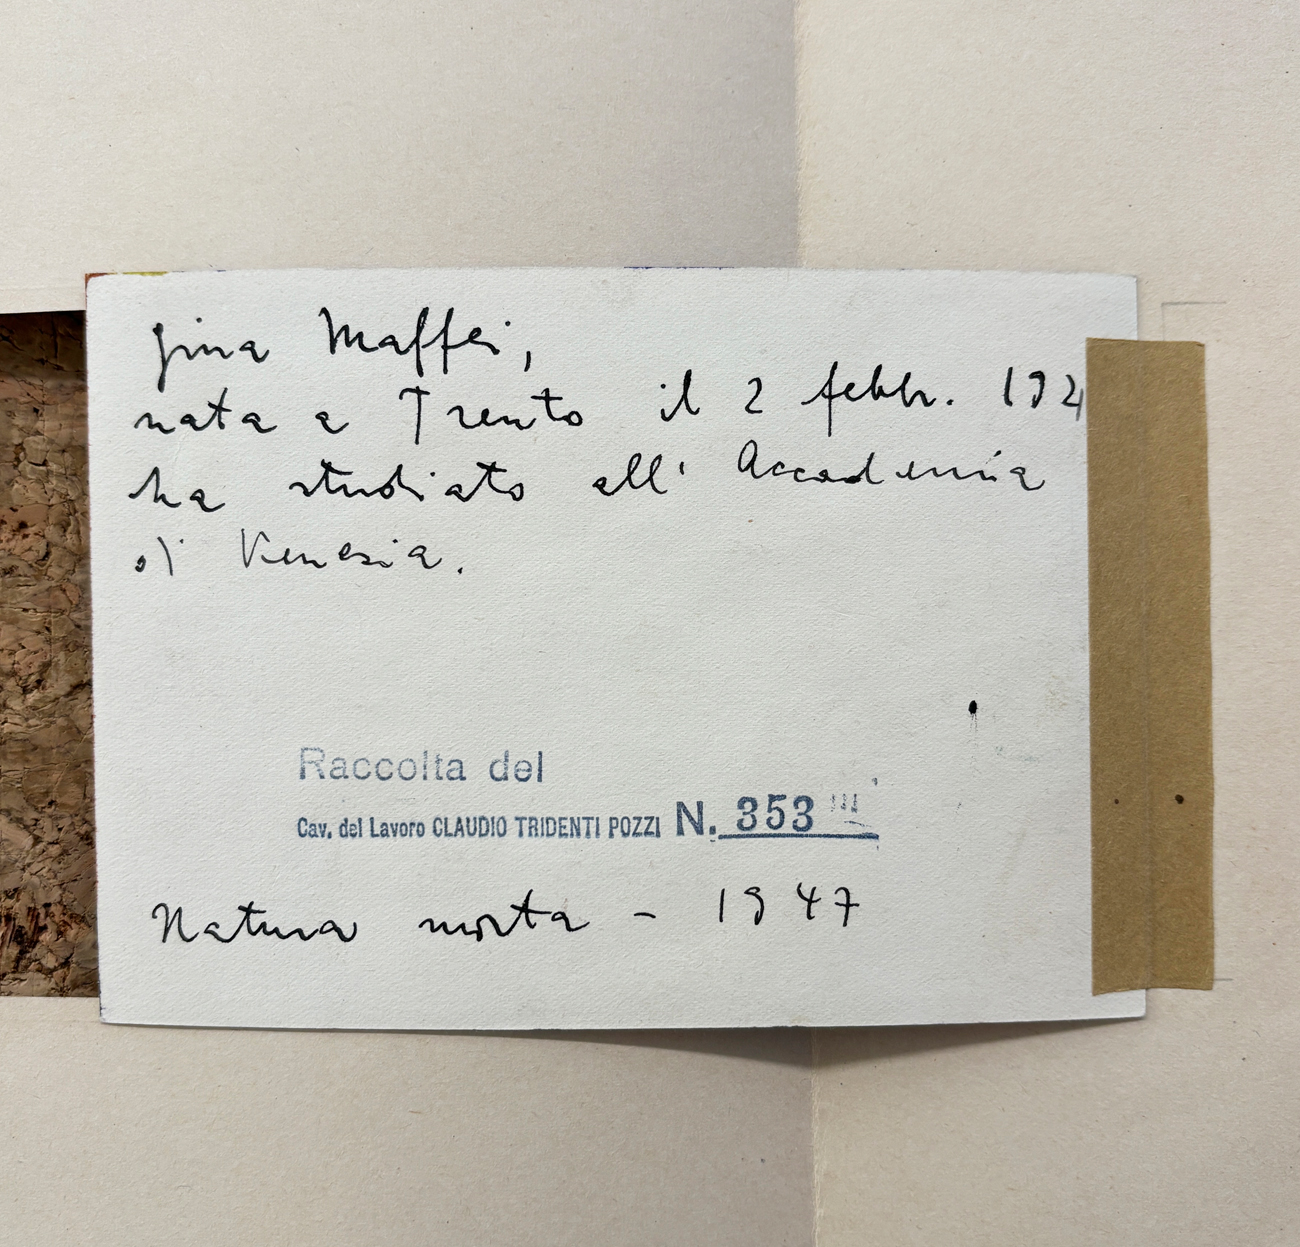 Gina Maffei,
nata a Trento il 2 febbr. 192
ha studiato all' Accademia
di Venezia.
Raccolta del
Cav. del Lavoro CLAUDIO TRIDENTI POZZI N. 353
Natura morta - 1947